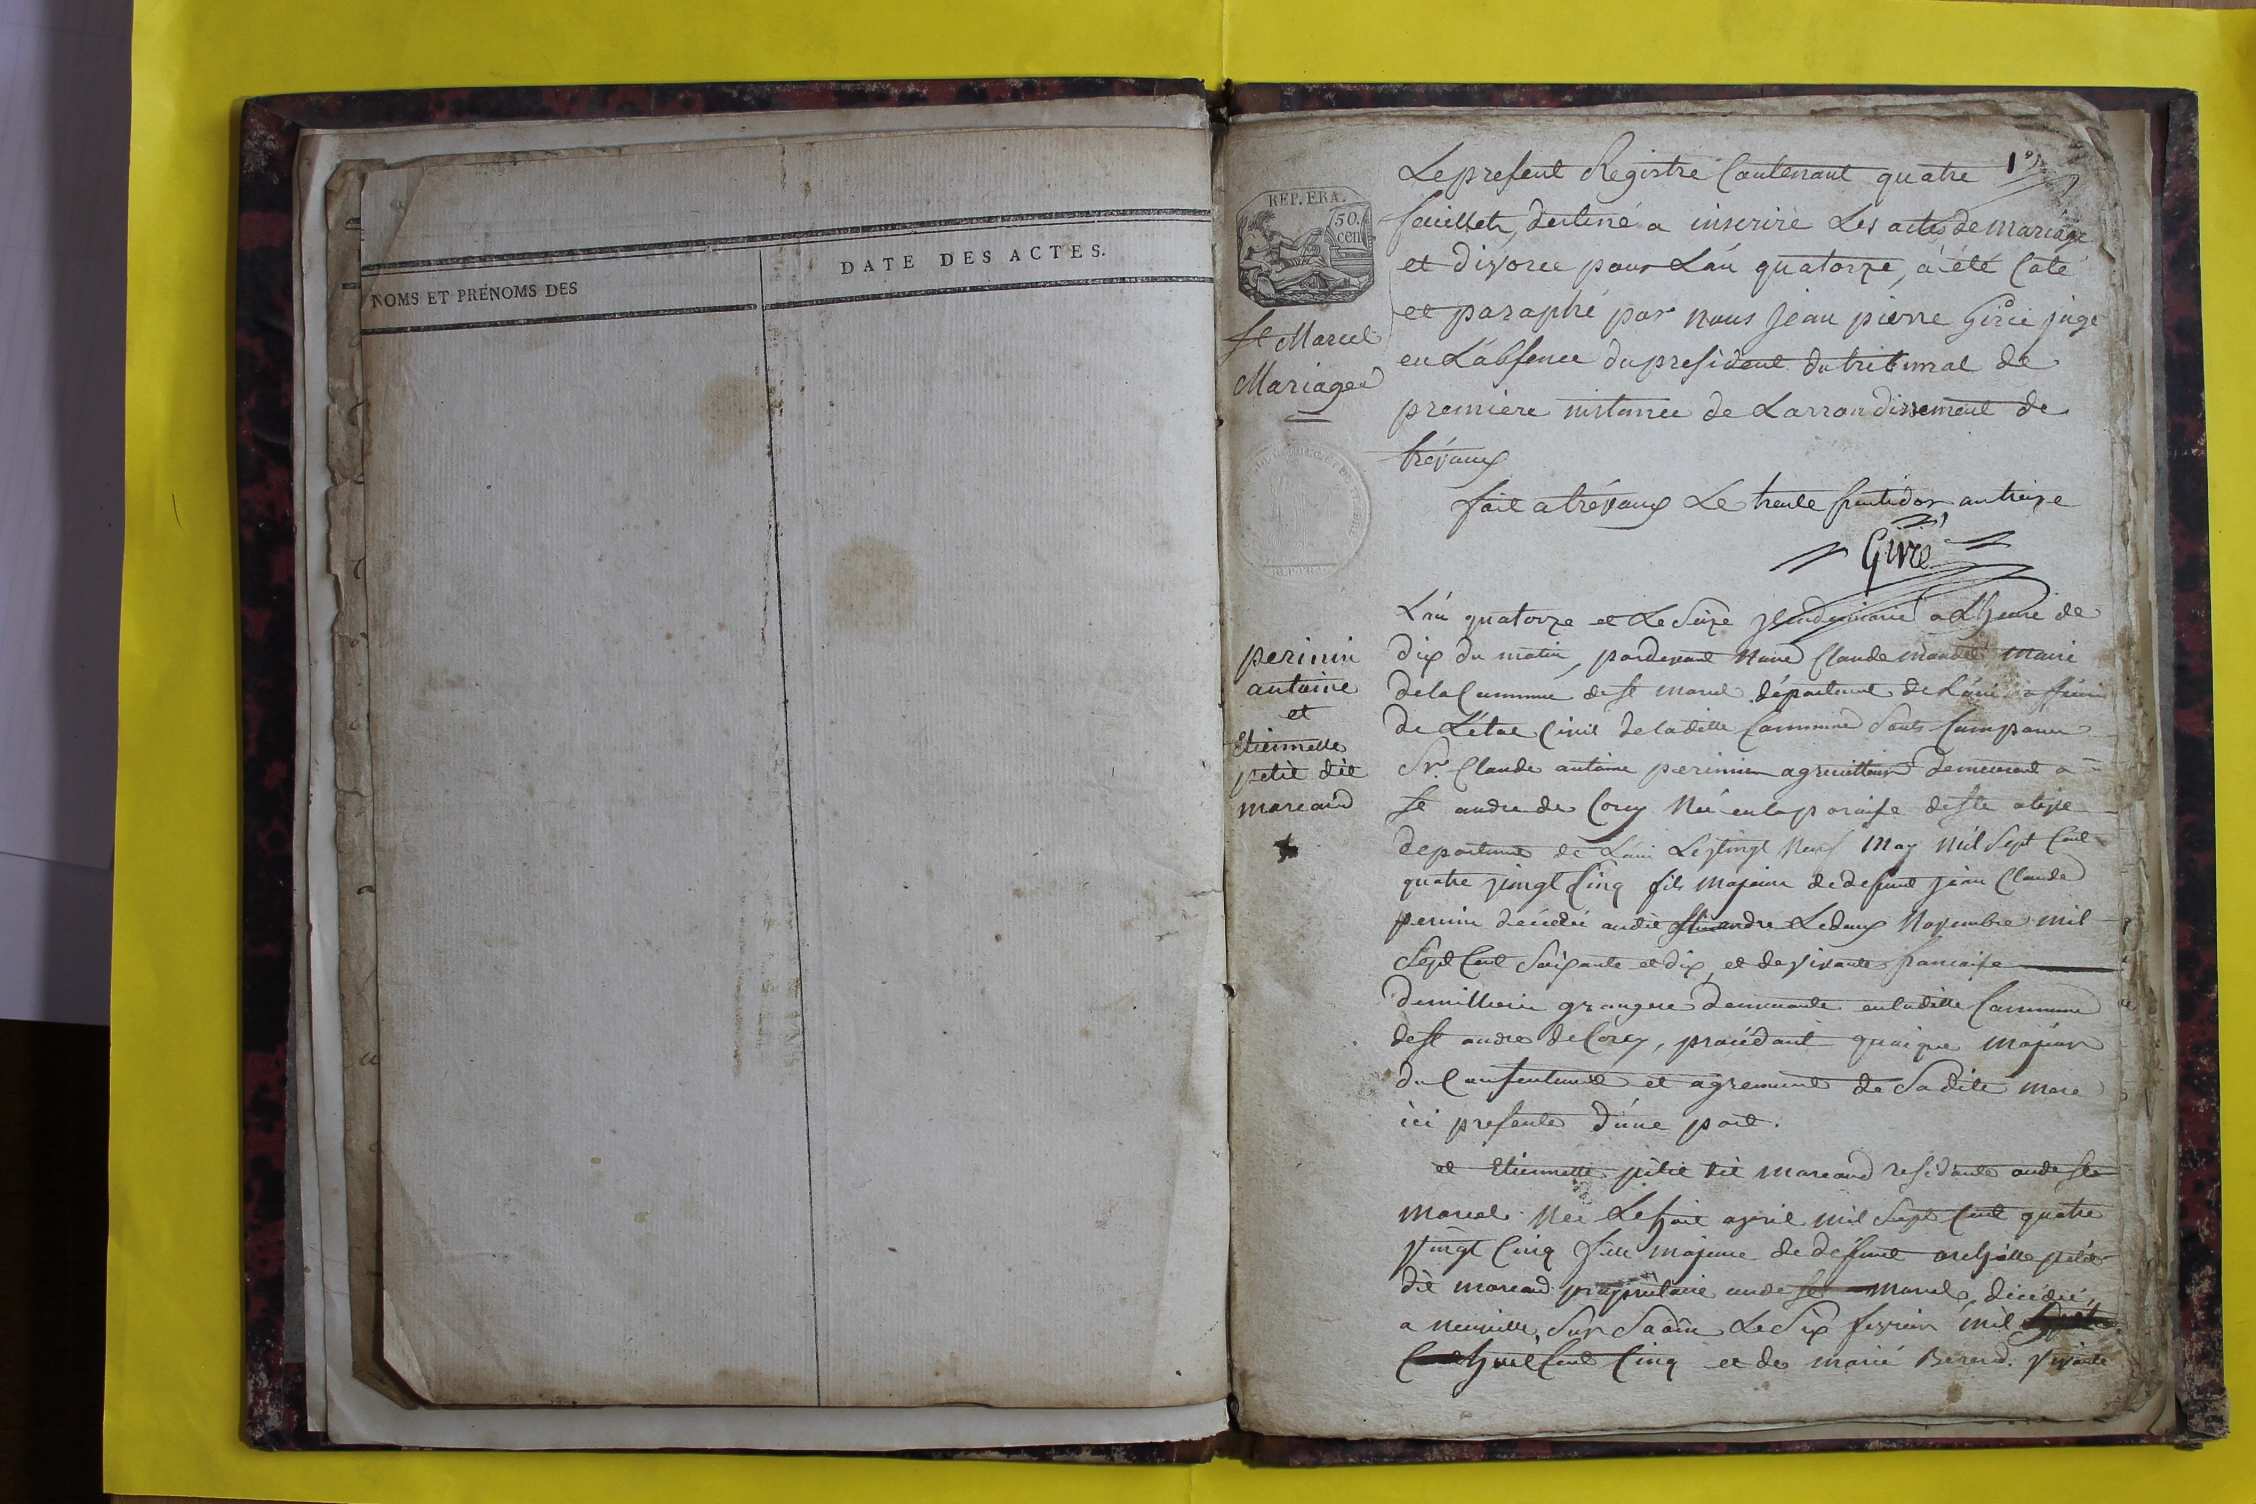 NOMS ET PRÉNOMS DES
DATE DES ACTES.
1er
REP. FRA.
50.
cen
St Marcel
Mariages
Le present Registre Contenant quatre
feuillets, destiné a inscrire Les actes de mariage
et divorce pour L'an quatorze, a été Coté
et paraphé par nous Jean pierre Giriè juge
en L'absence du president du tribunal de
premiere instance de Larrondissement de
trévoux
fait a trévoux Le trente fructidor an treize
Girié
perinin
antoine
et
Etiennette
petit dit
marcaud
L'an quatorze et Le Seize vendemiaire a L'heure de
dix du matin, pardevant Nous Claude maire
de la Commune de st marcel département de L'ain officier
de L'état Civil de la ditte Commune Sont Comparu
Sr. Claude antoine perinin agriculteur demeurant a
st andre de Corcy Né en la paroise de ste
departement de L'ain Le vingt Neuf May mil Sept Cent
quatre vingt Cinq fils majeur de defunt jean Claude
perinin decedé audit st andre Le deux Novembre mil
Sept Cent Soixante et dix, et de vivante francoise
demilliere grangere demeurante en la ditte Commune
de st andre de Corcy, procédant quoique majeur
du Consentement et agrement de Sa dite mere
ici presente d'une part.
et Etiennette petit dit marcaud residante au dit st
marcel Née Le huit avril mil Sept Cent quatre
vingt Cinq fille majeure de défunt petit
dit marcaud propriétaire au dit st marcel, décédé
a neuville Sur Saône Le Six fevrier mil
huit Cent Cinq et de marie Berard vivante